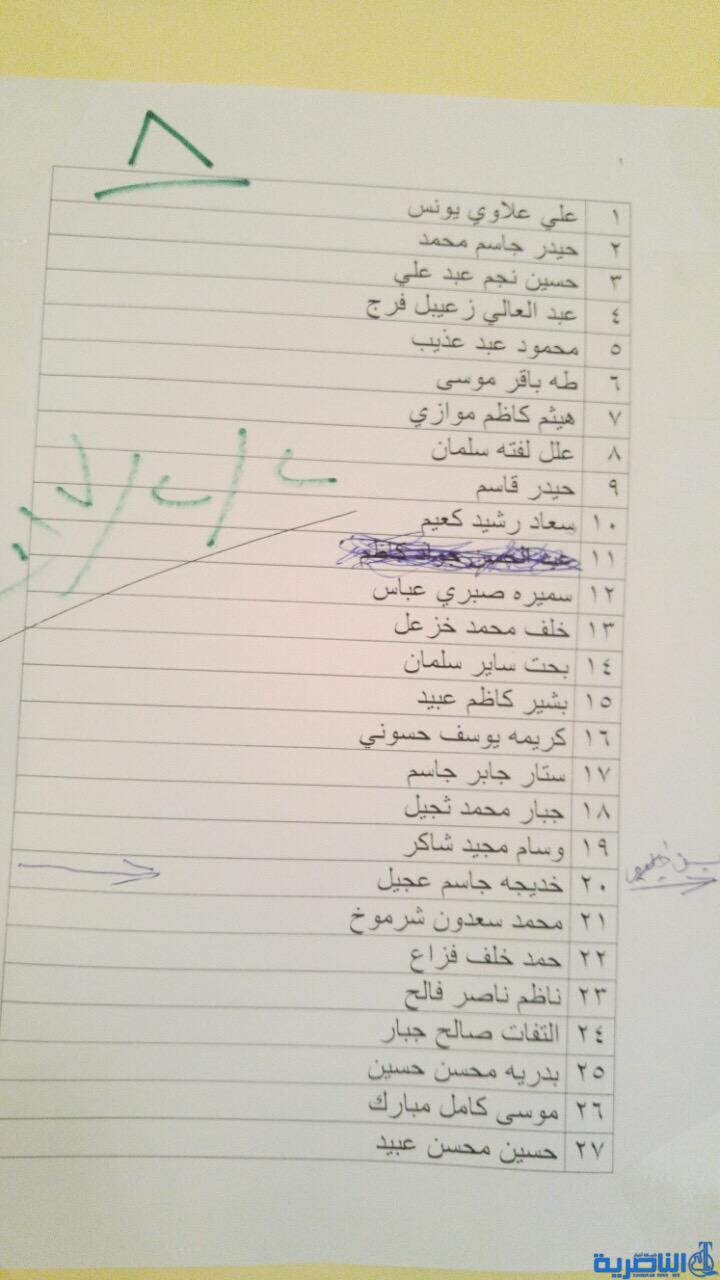 ٨
١ علي علاوي يونس
٢ حيدر جاسم محمد
٣ حسين نجم عبد علي
٤ عبد العالي زعيبل فرج
٥ محمود عبد عذيب
٦ طه باقر موسى
٧ هيثم كاظم موازي
٨ علل لفته سلمان
٩ حيدر قاسم
١٠ سعاد رشيد كعيم
١١
١٢ سميره صبري عباس
١٣ خلف محمد خزعل
١٤ بحت ساير سلمان
١٥ بشير كاظم عبيد
١٦ كريمه يوسف حسوني
١٧ ستار جابر جاسم
١٨ جبار محمد ثجيل
١٩ وسام مجيد شاكر
٢٠ خديجه جاسم عجيل
٢١ محمد سعدون شرموخ
٢٢ حمد خلف فزاع
٢٣ ناظم ناصر فالح
٢٤ التفات صالح جبار
٢٥ بدريه محسن حسين
٢٦ موسى كامل مبارك
٢٧ حسين محسن عبيد
الناصرية